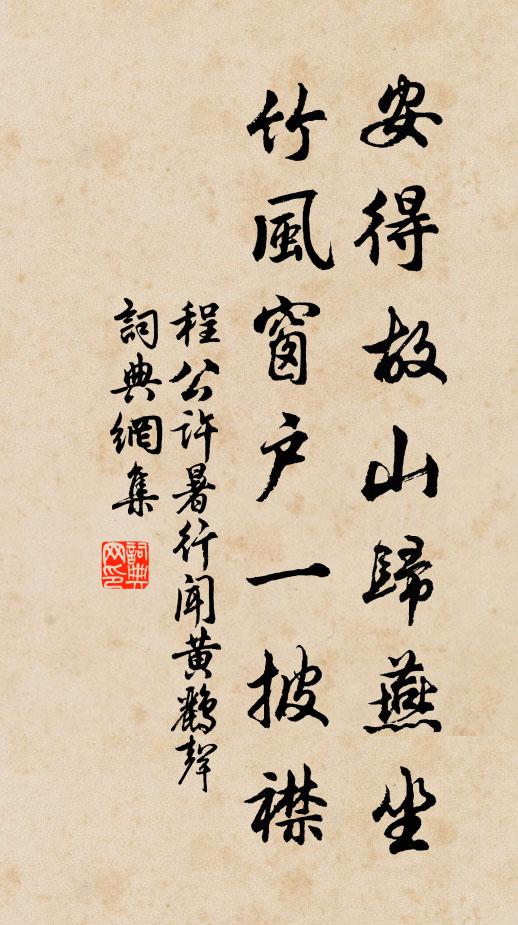 安得故山歸燕坐
竹風窗户一披襟
程公許暑行聞黄鸝聲
詞典網集
詞典網印